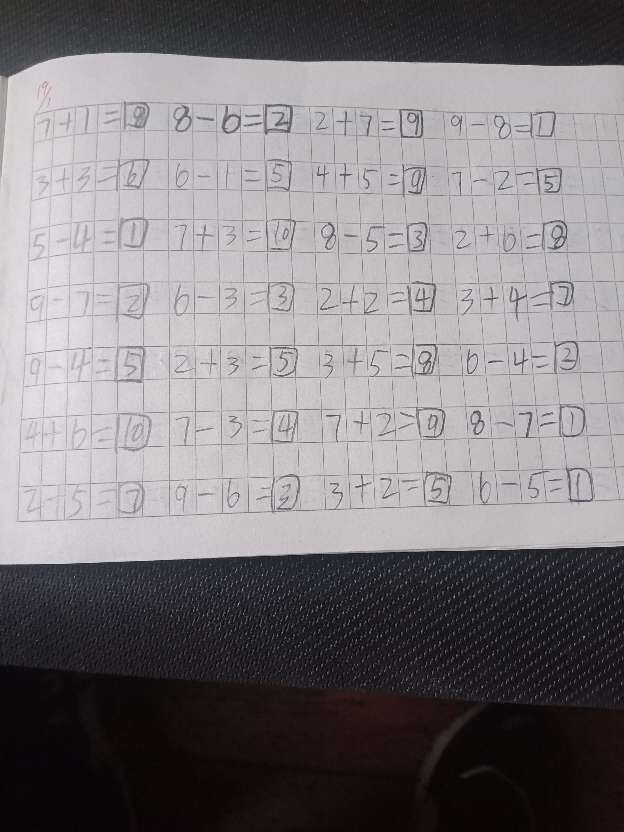 19/1
7+1=8 8-6=2 2+7=9 9-8=1
3+3=6 6-1=5 4+5=9 7-2=5
5-4=1 7+3=10 8-5=3 2+6=8
9-7=2 6-3=3 2+2=4 3+4=7
9-4=5 2+3=5 3+5=8 6-4=2
4+6=10 7-3=4 7+2=9 8-7=1
2+5=7 9-6=3 3+2=5 6-5=1